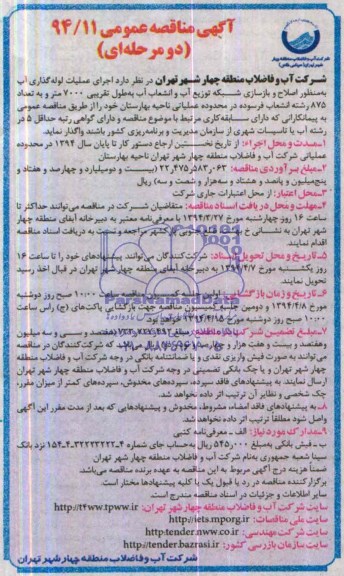 آگهی مناقصه عمومی ۹۴/۱۱
(دو مرحله‌ای)
شرکت آب و فاضلاب منطقه چهار شهر تهران در نظر دارد اجرای عملیات لوله‌گذاری آب
به‌منظور اصلاح و بازسازی شبکه توزیع آب و انشعاب آب به‌طول تقریبی ۷۰۰۰ متر و به تعداد
۸۷۵ رشته انشعاب فرسوده در محدوده عملیاتی ناحیه بهارستان خود را از طریق مناقصه عمومی
به پیمانکارانی که دارای سابقه‌کاری مرتبط با موضوع مناقصه و دارای گواهی رتبه حداقل ۵ در
رشته آب یا تاسیسات شهری از سازمان مدیریت و برنامه‌ریزی کشور باشند واگذار نماید.
۱ـ مدت و محل اجراء: از تاریخ نخستین ارجاع دستور کار تا پایان سال ۱۳۹۴ در محدوده
عملیاتی شرکت آب و فاضلاب منطقه چهار شهر تهران ناحیه بهارستان
۲ـ مبلغ برآوردی مناقصه: ۲۲,۴۷۵,۵۸۳,۰۶۳ (بیست و دو میلیارد و چهارصد و هفتاد و
پنج میلیون و پانصد و هشتاد و سه هزار و شصت و سه) ریال
۳ـ محل اعتبار: از محل اعتبارات جاری شرکت
۴ـ مهلت و محل دریافت اسناد مناقصه: متقاضیان شرکت در مناقصه می‌توانند حداکثر تا
ساعت ۱۶ روز چهارشنبه مورخ ۱۳۹۴/۳/۲۷ با معرفی‌نامه معتبر به دبیرخانه آبفای منطقه چهار
شهر تهران به نشانی خ مراجعه و نسبت به دریافت اسناد مناقصه
اقدام نمایند.
۵ـ تاریخ و محل تحویل اسناد: شرکت‌کنندگان می‌توانند پیشنهادهای خود را تا ساعت ۱۶
روز یکشنبه مورخ ۱۳۹۴/۴/۷ به دبیرخانه آبفای منطقه چهار شهر تهران در قبال اخذ رسید
تحویل نمایند.
۶ـ تاریخ و زمان بازگشایی: اولین جلسه کمیسیون مناقصه ساعت ۱۰:۰۰ صبح روز دوشنبه
مورخ ۱۳۹۴/۴/۸ و دومین جلسه کمیسیون مناقصه جهت بازگشایی پاکت‌های (ج) راس ساعت
۱۰:۰۰ صبح روز دوشنبه مورخ
۷ـ مبلغ تضمین شرکت در مناقصه:
که شرکت‌کنندگان در مناقصه
می‌توانند به صورت فیش واریزی نقدی و یا ضمانتنامه بانکی در وجه شرکت آب و فاضلاب منطقه
چهار شهر تهران و یا چک بانکی تضمینی در وجه شرکت آب و فاضلاب منطقه چهار شهر تهران
ارسال نمایند. به پیشنهادهای فاقد سپرده، سپرده‌های مخدوش، سپرده‌های کمتر از میزان مقرر،
چک شخصی و نظایر آن ترتیب اثر داده نخواهد شد.
۸ـ به پیشنهادهای فاقد امضاء، مشروط، مخدوش و پیشنهادهایی که بعد از مدت مقرر این آگهی
واصل شود مطلقاً ترتیب اثر داده نخواهد شد.
۹ـ مدارک مورد نیاز: الف ـ معرفی‌نامه کتبی
ب ـ فیش بانکی به‌مبلغ ۵۴۵,۰۰۰ ریال به‌حساب جای شماره نزد بانک
سپنا شعبه جمهوری به‌نام شرکت آب و فاضلاب منطقه چهار شهر تهران
ضمناً هزینه درج آگهی مربوط به این مناقصه به عهده برنده مناقصه می‌باشد.
برگزار کننده مناقصه در رد یا قبول یک یا کلیه پیشنهادها مختار است.
سایر اطلاعات و جزئیات در اسناد مناقصه مندرج است.
سایت شرکت آب و فاضلاب منطقه چهار شهر تهران: http://t4ww.tpww.ir
سایت ملی مناقصات: http://iets.mporg.ir
سایت شرکت مهندسی: http:tender.nww.co.ir
سایت سازمان بازرسی کشور: http:tender.bazrasi.ir
شرکت آب و فاضلاب منطقه چهار شهر تهران